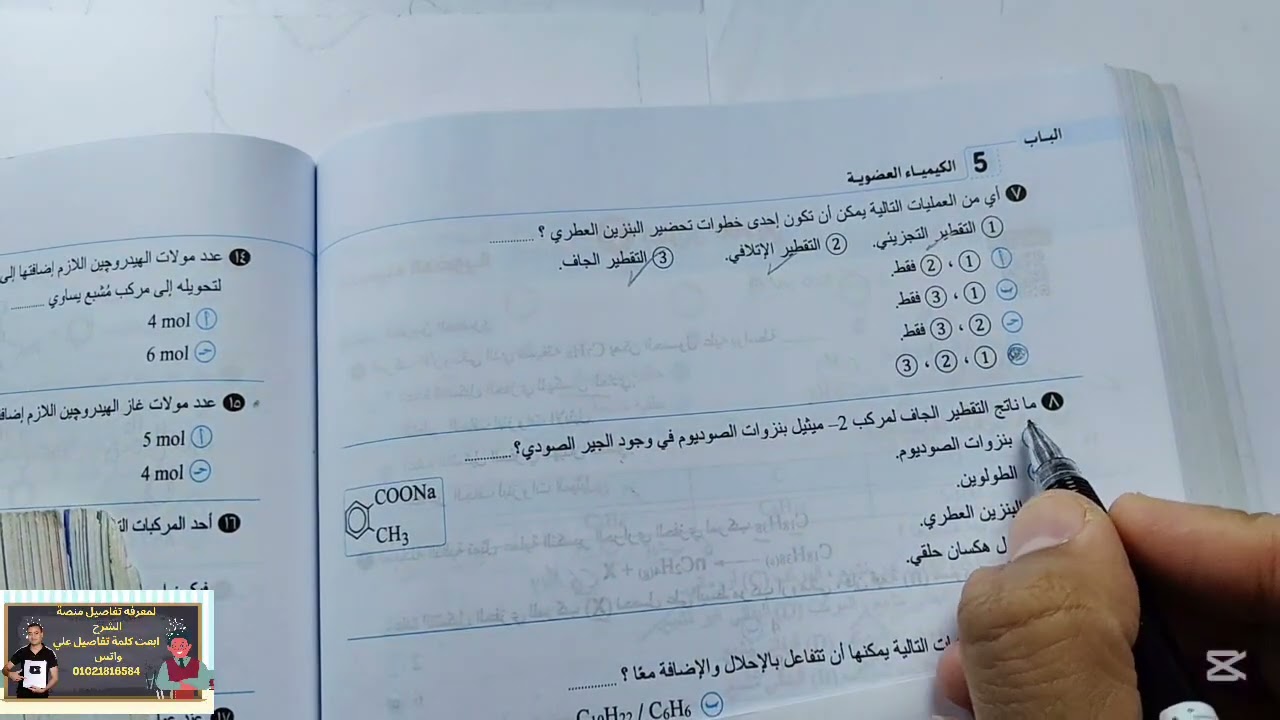 الباب
5 الكيمياء العضوية
٧ أي من العمليات التالية يمكن أن تكون إحدى خطوات تحضير البنزين العطري ؟ ............
① التقطير التجزيئي. ② التقطير الإتلافي. ③ التقطير الجاف.
أ ① ، ② فقط.
ب ① ، ③ فقط.
جـ ② ، ③ فقط.
① ، ② ، ③
٨ ما ناتج التقطير الجاف لمركب 2– ميثيل بنزوات الصوديوم في وجود الجير الصودي؟ ............
بنزوات الصوديوم.
الطولوين.
البنزين العطري.
هكسان حلقي.
COONa
CH₃
التالية يمكنها أن تتفاعل بالإحلال والإضافة معًا ؟ ............
ب C₁₀H₂₂ / C₆H₆
١٤ عدد مولات الهيدروچين اللازم إضافتها إلى
لتحويله إلى مركب مُشبع يساوي ............
أ 4 mol
جـ 6 mol
١٥ عدد مولات غاز الهيدروچين اللازم
أ 5 mol
جـ 4 mol
١٦ أحد المركبات
١٧
لمعرفه تفاصيل منصة
الشرح
ابعت كلمة تفاصيل علي
واتس
01021816584